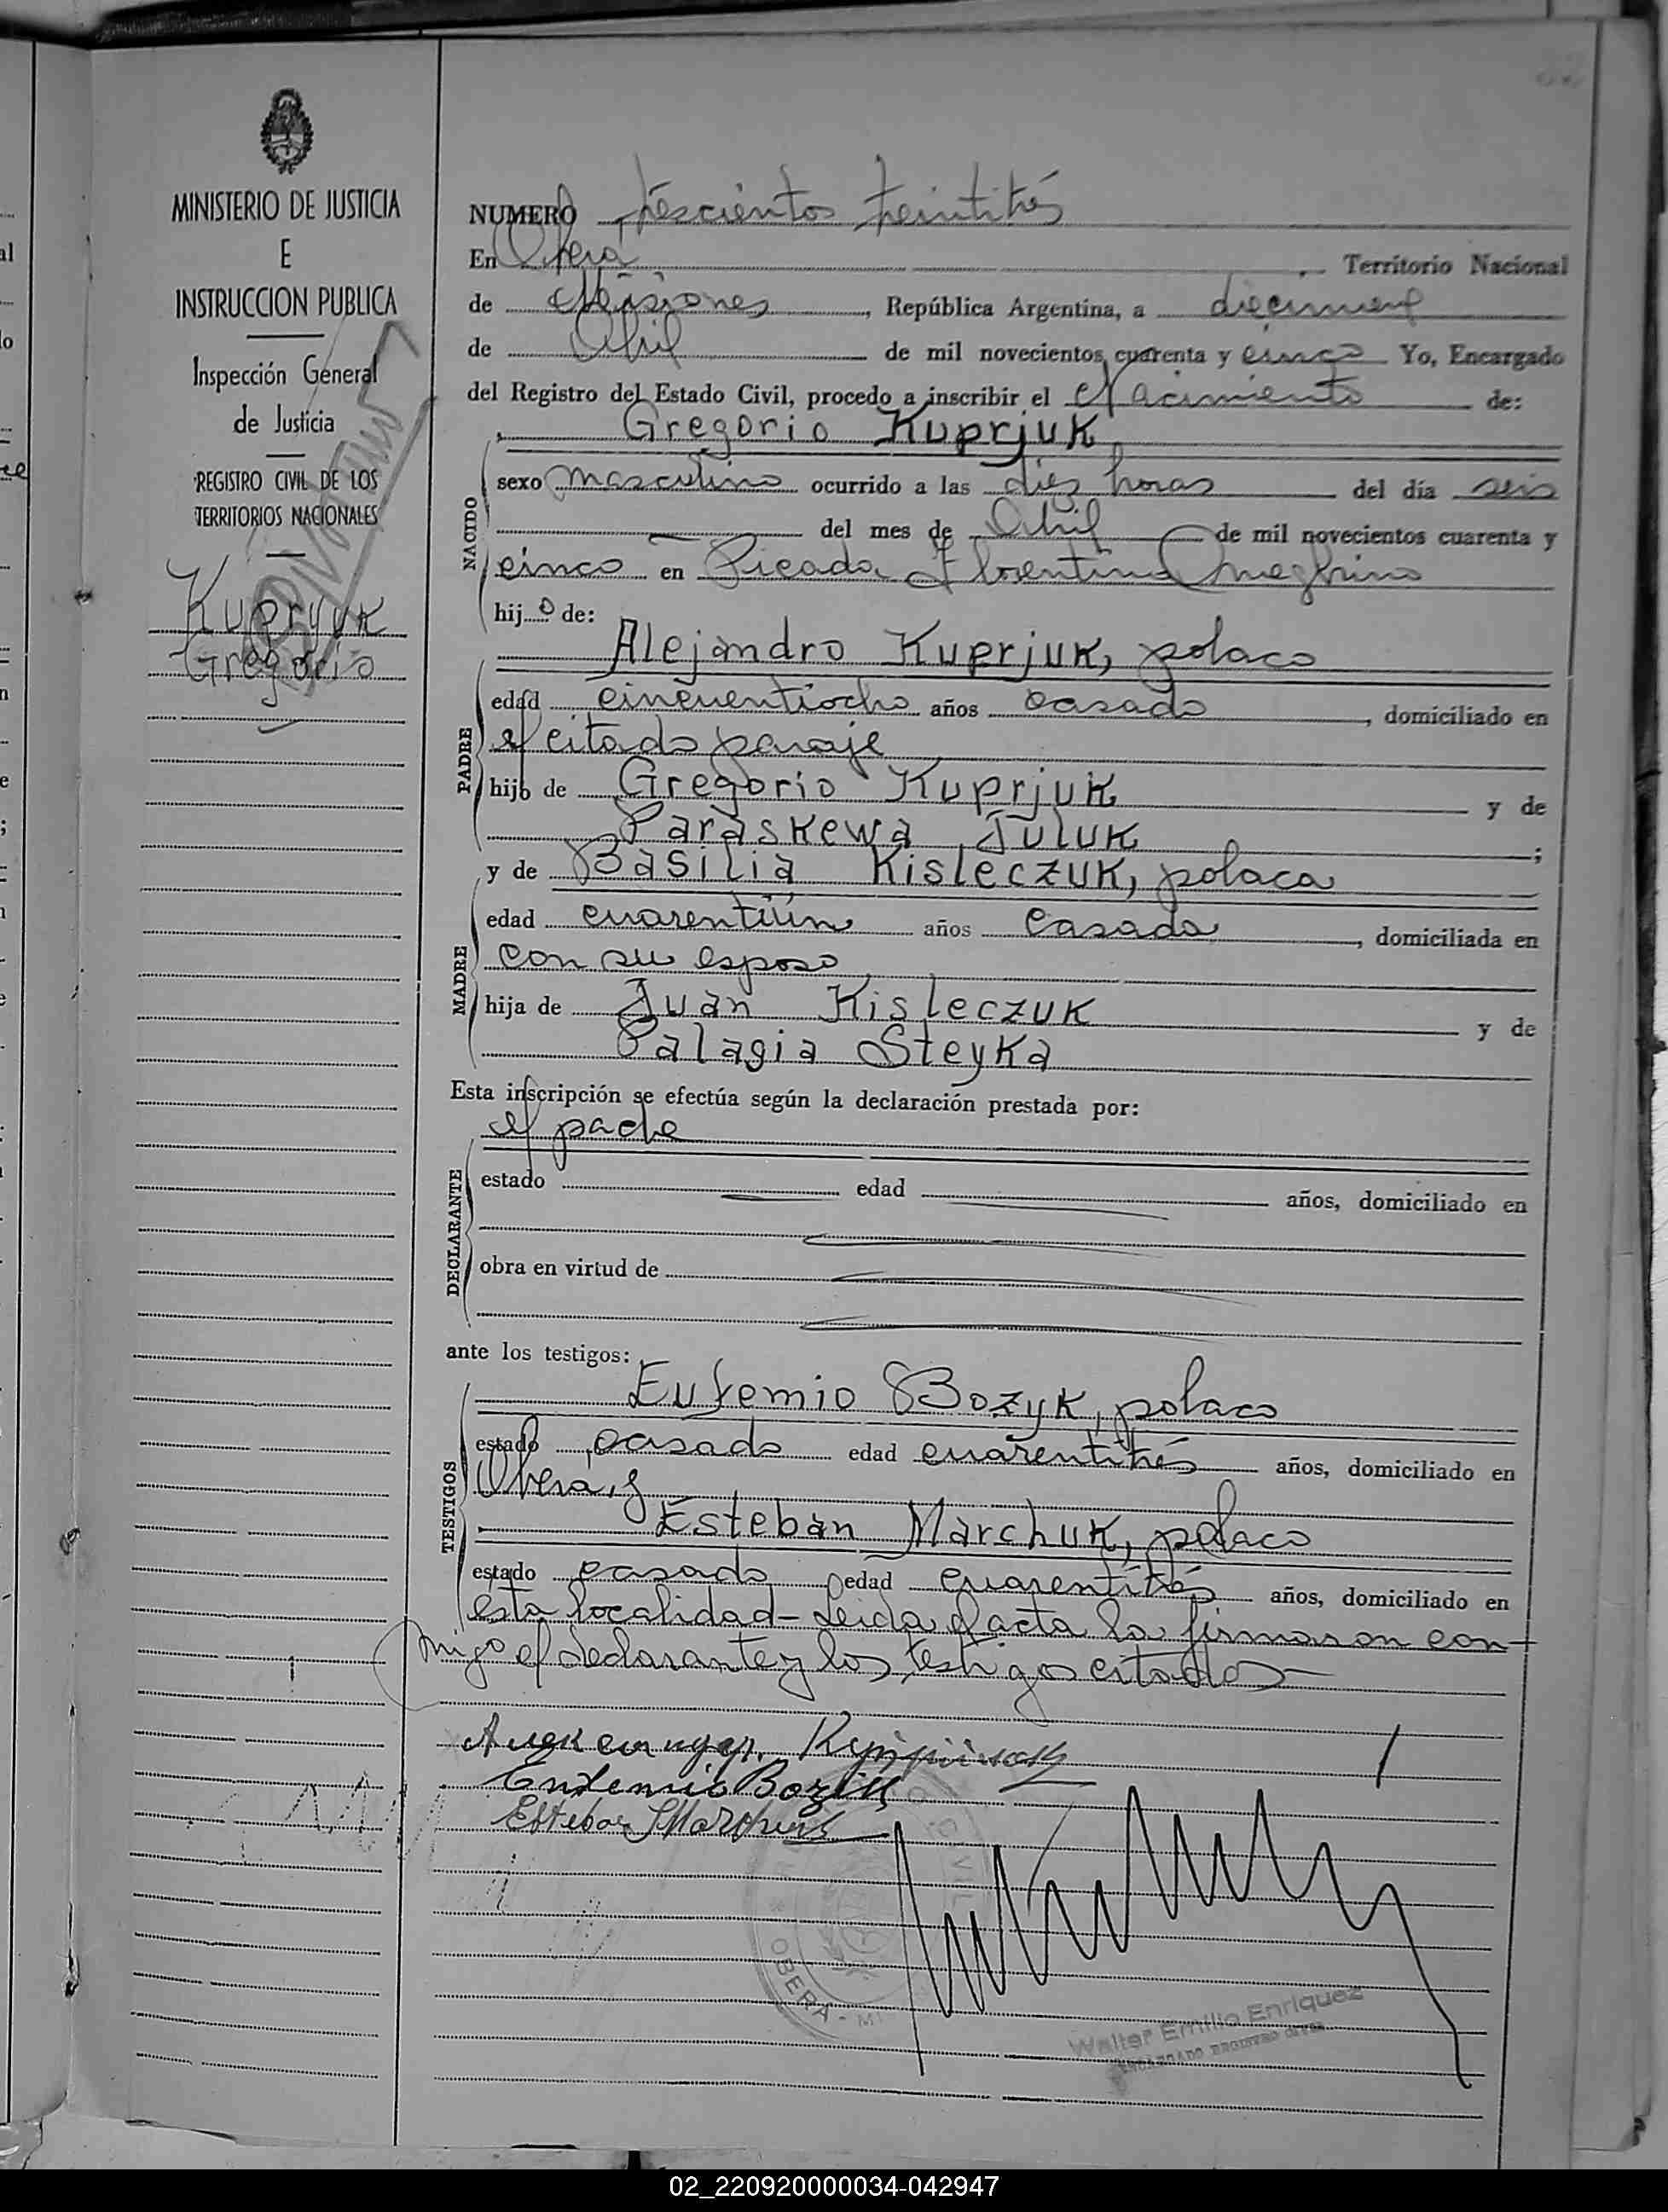 MINISTERIO DE JUSTICIA
E
INSTRUCCION PUBLICA
Inspección General
de Justicia
REGISTRO CIVIL DE LOS
TERRITORIOS NACIONALES
Kuprjuk
Gregorio
NUMERO trescientos treintitrés
En Oberá, Territorio Nacional
de Misiones, República Argentina, a diecinueve
de Abril de mil novecientos cuarenta y cinco Yo, Encargado
del Registro del Estado Civil, procedo a inscribir el Nacimiento de:
Gregorio Kuprjuk
NACIDO
sexo masculino ocurrido a las diez horas del día seis
del mes de Abril de mil novecientos cuarenta y
cinco en Picada Florentino Ameghino
hijo de:
PADRE
Alejandro Kuprjuk, polaco
edad cincuentiocho años casado, domiciliado en
el citado paraje
hijo de Gregorio Kuprjuk y de
Paraskewa Juluk;
MADRE
y de Basilia Kisleczuk, polaca
edad cuarentiún años casada, domiciliada en
con su esposo
hija de Juan Kisleczuk y de
Palagia Steyka
Esta inscripción se efectúa según la declaración prestada por:
el padre
DECLARANTE
estado edad años, domiciliado en
obra en virtud de
ante los testigos:
TESTIGOS
Eufemio Bozyk, polaco
estado casado edad cuarentitrés años, domiciliado en
Oberá, y
Esteban Marchuk, polaco
estado casado edad cuarentitrés años, domiciliado en
esta localidad - Leida el acta la firmaron con-
migo el declarante y los testigos citados
Eufemio Bozik
Esteban Marchuk
OBERA - MI
Walter Emilio Enriquez
ENCARGADO REGISTRO CIVIL
02_220920000034-042947